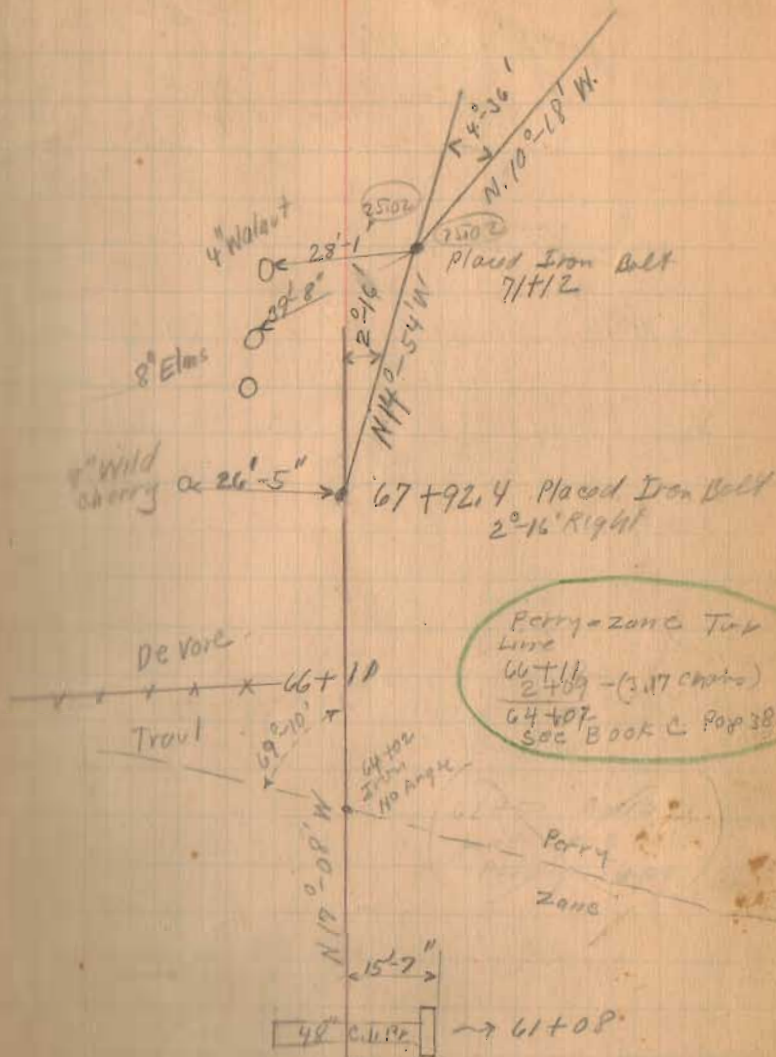 4°-36'
N. 10°-18' W.
25102
25102
4" Walnut
28'-1
Placed Iron Bolt
71+12
39'-8"
2°-16'
N 14°-54' W
8" Elms
Wild
Cherry
26'-5"
67+92.4 Placed Iron Bolt
2°-16' Right
De Vore
66+10
Perry-Zane Twp
Line
66+11
2+09 - (3.17 chains)
64+02
See Book C Page 38
Traul
69°-10'
64+02
Iron
No Angle
Perry
Zane
N 17°-08' W
15'-7"
48" C.M.P.
61+08